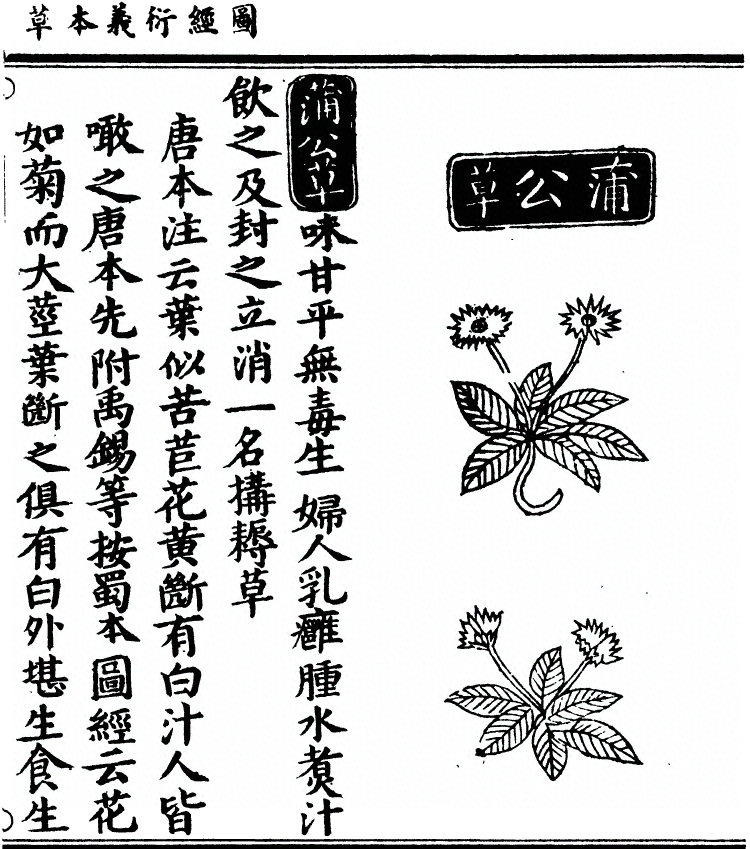 圖經衍義本草
蒲公草
蒲公草味甘平無毒生 婦人乳癕腫水煑汁
飲之及封之立消一名搆耨草
唐本注云葉似苦苣花黄斷有白汁人皆
噉之唐本先附禹錫等按蜀本圖經云花
如菊而大莖葉斷之俱有白外堪生食生